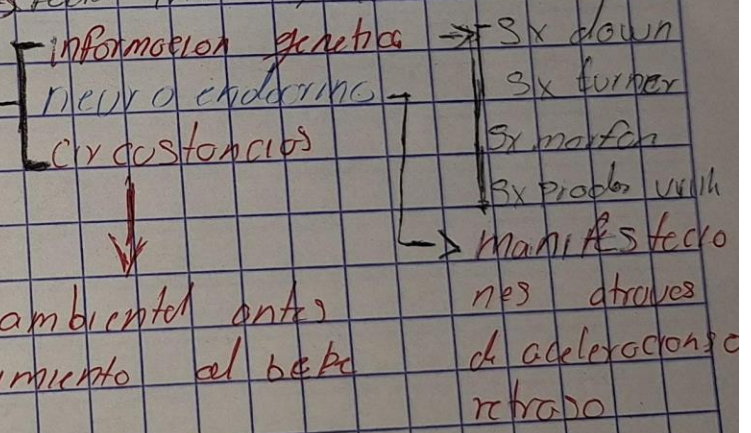 información genetica → Sx down
neuro endocrino Sx turner
circustancias Sx marfan
Sx prader willi
manifestacio
nes atraves
d aceleracions o
retraso
ambiental antes
miento al bebe